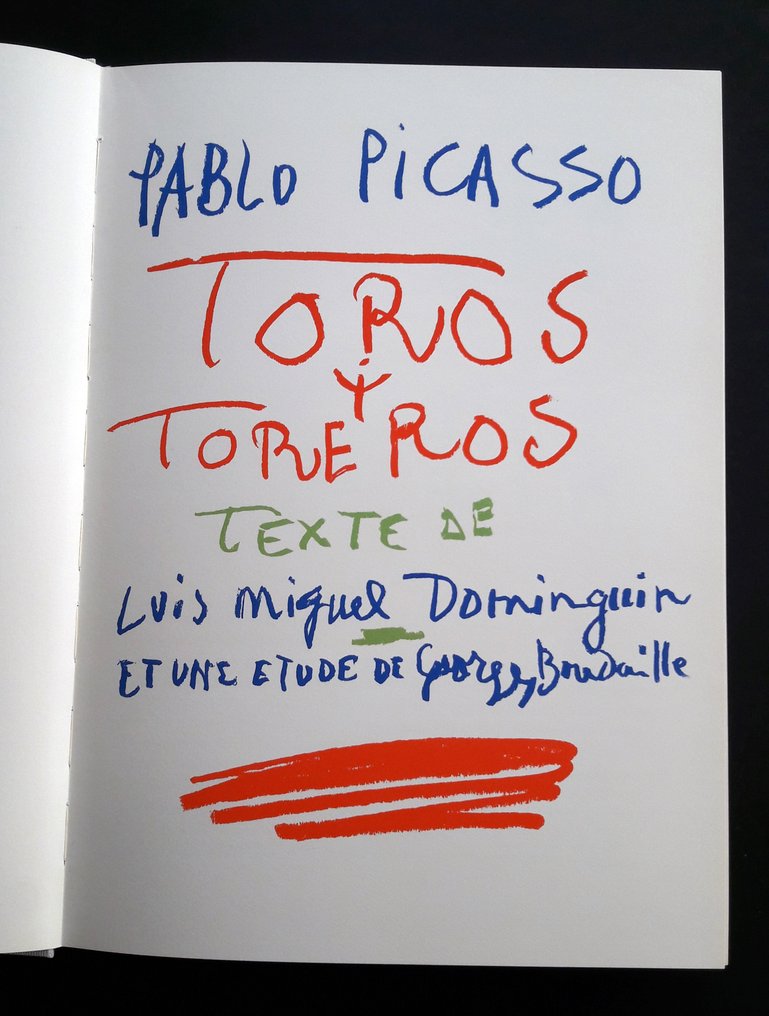 PABLO PiCASSO
TOROS
Y
TOREROS
TEXTE DE
Luis Miguel Dominguin
ET UNE ETUDE DE Georges Boudaille